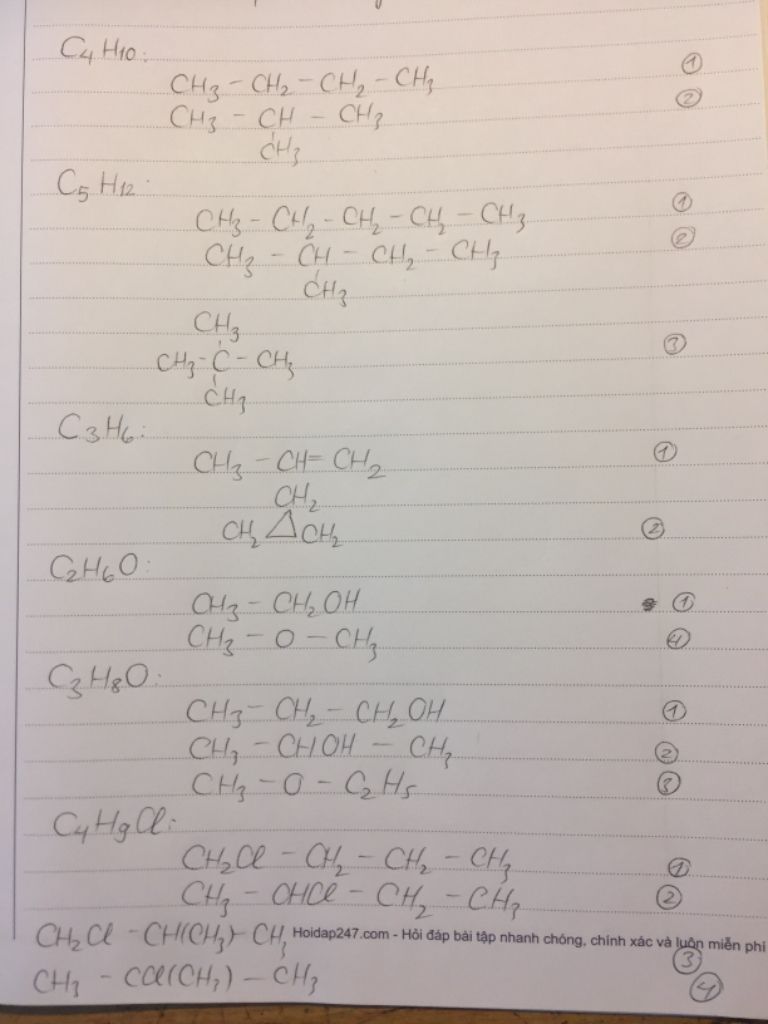 C4H10:
CH3 - CH2 - CH2 - CH3 ①
CH3 - CH - CH3 ②
CH3
C5H12:
CH3 - CH2 - CH2 - CH2 - CH3 ①
CH3 - CH - CH2 - CH3 ②
CH3
CH3
CH3 - C - CH3 ③
CH3
C3H6:
CH3 - CH = CH2 ①
CH2
CH2 △ CH2 ②
C2H6O:
CH3 - CH2OH ①
CH3 - O - CH3
C3H8O:
CH3 - CH2 - CH2OH ①
CH3 - CHOH - CH3 ②
CH3 - O - C2H5 ③
C4H9Cl:
CH2Cl - CH2 - CH2 - CH3 ①
CH3 - CHCl - CH2 - CH3 ②
CH2Cl - CH(CH3) - CH3 Hoidap247.com - Hỏi đáp bài tập nhanh chóng, chính xác và luôn miễn phí
③
CH3 - CCl(CH3) - CH3 ④